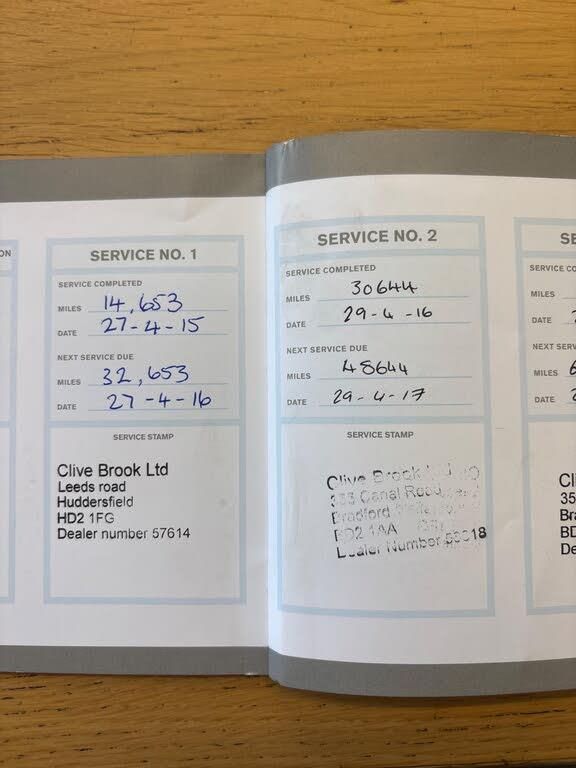 ON
SERVICE NO. 1
SERVICE COMPLETED
MILES 14,653
DATE 27-4-15
NEXT SERVICE DUE
MILES 32,653
DATE 27-4-16
SERVICE STAMP
Clive Brook Ltd
Leeds road
Huddersfield
HD2 1FG
Dealer number 57614
SERVICE NO. 2
SERVICE COMPLETED
MILES 30644
DATE 29-4-16
NEXT SERVICE DUE
MILES 48644
DATE 29-4-17
SERVICE STAMP
Clive Brook
Canal Road
Bradford
BD2 1AA
Dealer Number
SE
SERVICE CO
MILES
DATE
NEXT SERV
MILES 6
DATE 2
Cli
35
Bra
BD
De